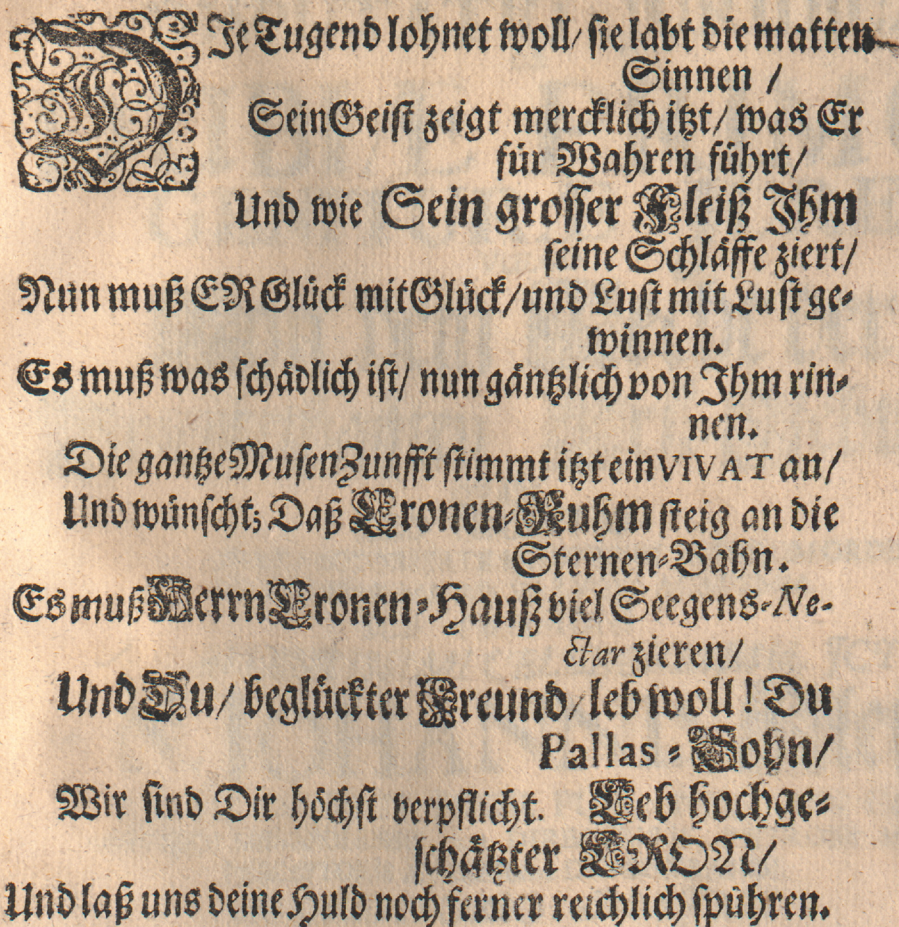 DJe Tugend lohnet woll/ sie labt die matten
Sinnen /
Sein Geist zeigt mercklich itzt/ was Er
für Wahren führt/
Und wie Sein grosser Fleiß Jhm
seine Schläffe ziert/
Nun muß ER Glück mit Glück/ und Lust mit Lust ge-
winnen.
Es muß was schädlich ist/ nun gäntzlich von Jhm rin-
nen.
Die gantze Musen Zunfft stimmt itzt ein VIVAT an/
Und wünscht; Daß Cronen-Ruhm steig an die
Sternen-Bahn.
Es muß Herrn Cronen-Hauß viel Seegens-Ne-
ctar zieren/
Und Du/ beglückter Freund/ leb woll! Du
Pallas-Sohn/
Wir sind Dir höchst verpflicht. Leb hochge-
schätzter CRON/
Und laß uns deine Huld noch ferner reichlich spühren.